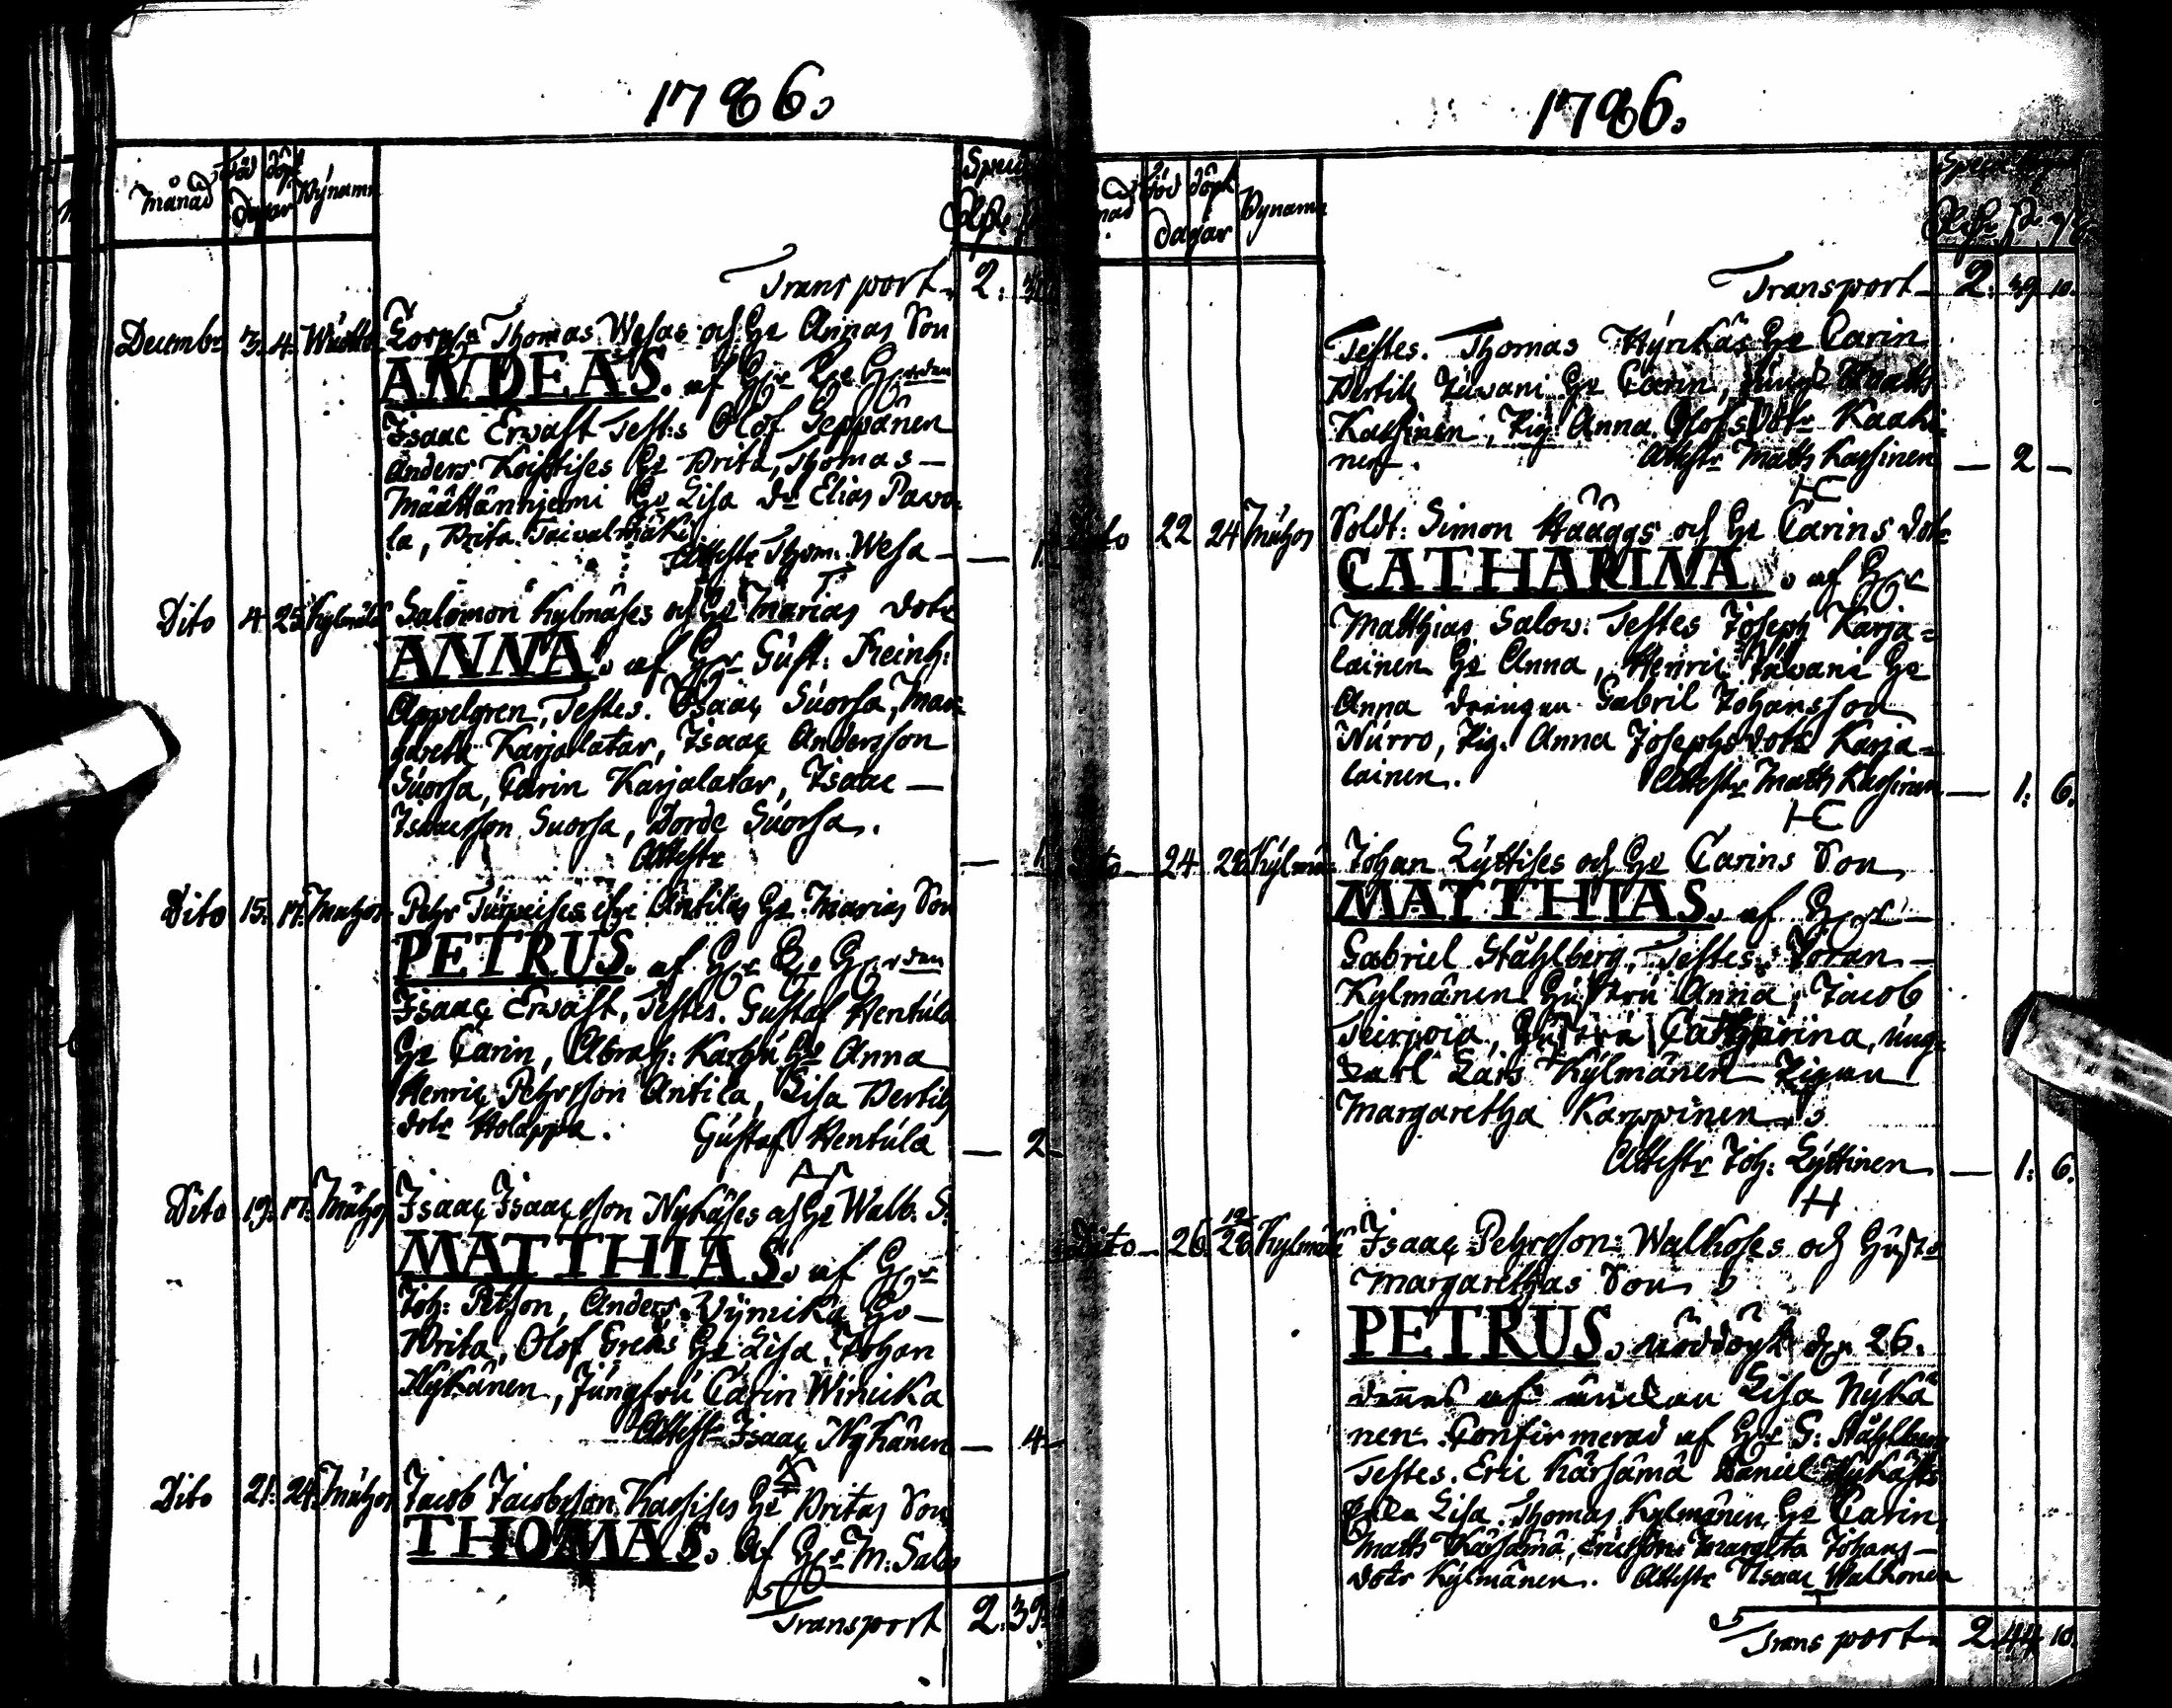 1786.
Månad
född
döpt
dagar
Bynamn
Transport 2.
Decembr 3. 4. Corpr Thomas Wesas och Hu Annas Son
ANDEAS. af
Isaac Erwast Test:s Olof Seppänen
Anders Koistises Hu Brita, Thomas
Määttänniemi Hu Lisa Dr Elias Pawo-
la, Brita Taiwalmäki
Attestr Thom. Wesa — 1
Dito 4. 25. Kylmälä Salomon Kylmäses och Hu Marias dotr
ANNA. af Hr Gust: Reinh:
Appelgren, Testes. Isaac Suorsa, Mar-
gareta Karjalatar, Isaac Andersson
Suorsa, Carin Karjalatar, Isaac
Isaacsson Suorsa, Borde Suorsa.
Attestr — 1
Dito 15. 17. Muhos Pehr Antilas Hu Marias Son
PETRUS. af
Isaac Erwast, Testes. Gustaf Hentula
Hu Carin, Abrah: Karhu Hu Anna
Henric Pehrsson Antila, Lisa Bertils
dotr Holappa. Gustaf Hentula — 2
Dito 19. 17. Muhos Isaac Isaacsson Nykäses och Hu Walb. S.
MATTHIAS. af Hr
Joh: Petson, Anders Hu
Brita, Olof Greks Hu Lisa, Johan
Nykänen, Jungfru Carin Winicka
Attestr Isaac Nykänen — 4
Dito 21. 24. Muhos Jacob Jacobsson Kaesises Hu Britas Son
THOMAS. Af Hr M: Salo
Transport 2. 39.
1786.
född
döpt
dagar
Bynamn
Transport 2. 39 10.
Testes. Thomas Hyrkäs Hu Carin
Bertil Juwani Hu Carin,
Kaesinen, Pig Anna Olofsdotr Kaaki-
nen. Attestr Math Kaesinen — 2 —
HC
Dito 22 24 Muhos Soldt: Simon Hääggs och Hu Carins dotr
CATHARINA. af Hr
Matthias Salow: Testes Joseph Karja-
lainen Hu Anna, Henric Juwani Hu
Anna drängen Gabril Johansson
Nurro, Pig. Anna Josephsdotr Karja-
lainen. Attestr Math Kaesinen — 1: 6.
HC
Dito 24 28 Kylmä Johan Lyttises och Hu Carins Son
MATTHIAS. af Hr
Gabriel Ståhlberg, Testes. Joran
Kylmänen Hustru Anna, Jacob
Teirioia, Hustru Catharina, ung-
karl Lars Kylmänen Pigan
Margaretha Karppinen.
Attestr Joh: Lyttinen — 1: 6.
H
Dito 26. 28. Kylmälä Isaac Pehrsson Walkoses och Hustr
Margarethas Son
PETRUS. nöddöpt den 26.
af änckan Lisa Nykä
nen. Confirmerad af Hr G: Ståhlberg
Testes. Eric Kärsämä Daniel Nykäses
Enka Lisa. Thomas Kylmänen Hu Carin,
Math Kärsämä, Ericsson Margeta Johans-
dotr Kylmänen. Attestr Isaac Walkonen
Transport 2. 44. 10.